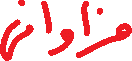 مزاوان